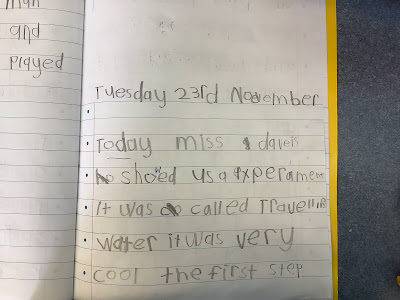 man
and
played
Tuesday 23rd November
Today miss daveis
shoed us a experamen
It was called Travellin
water it was very
cool the first step